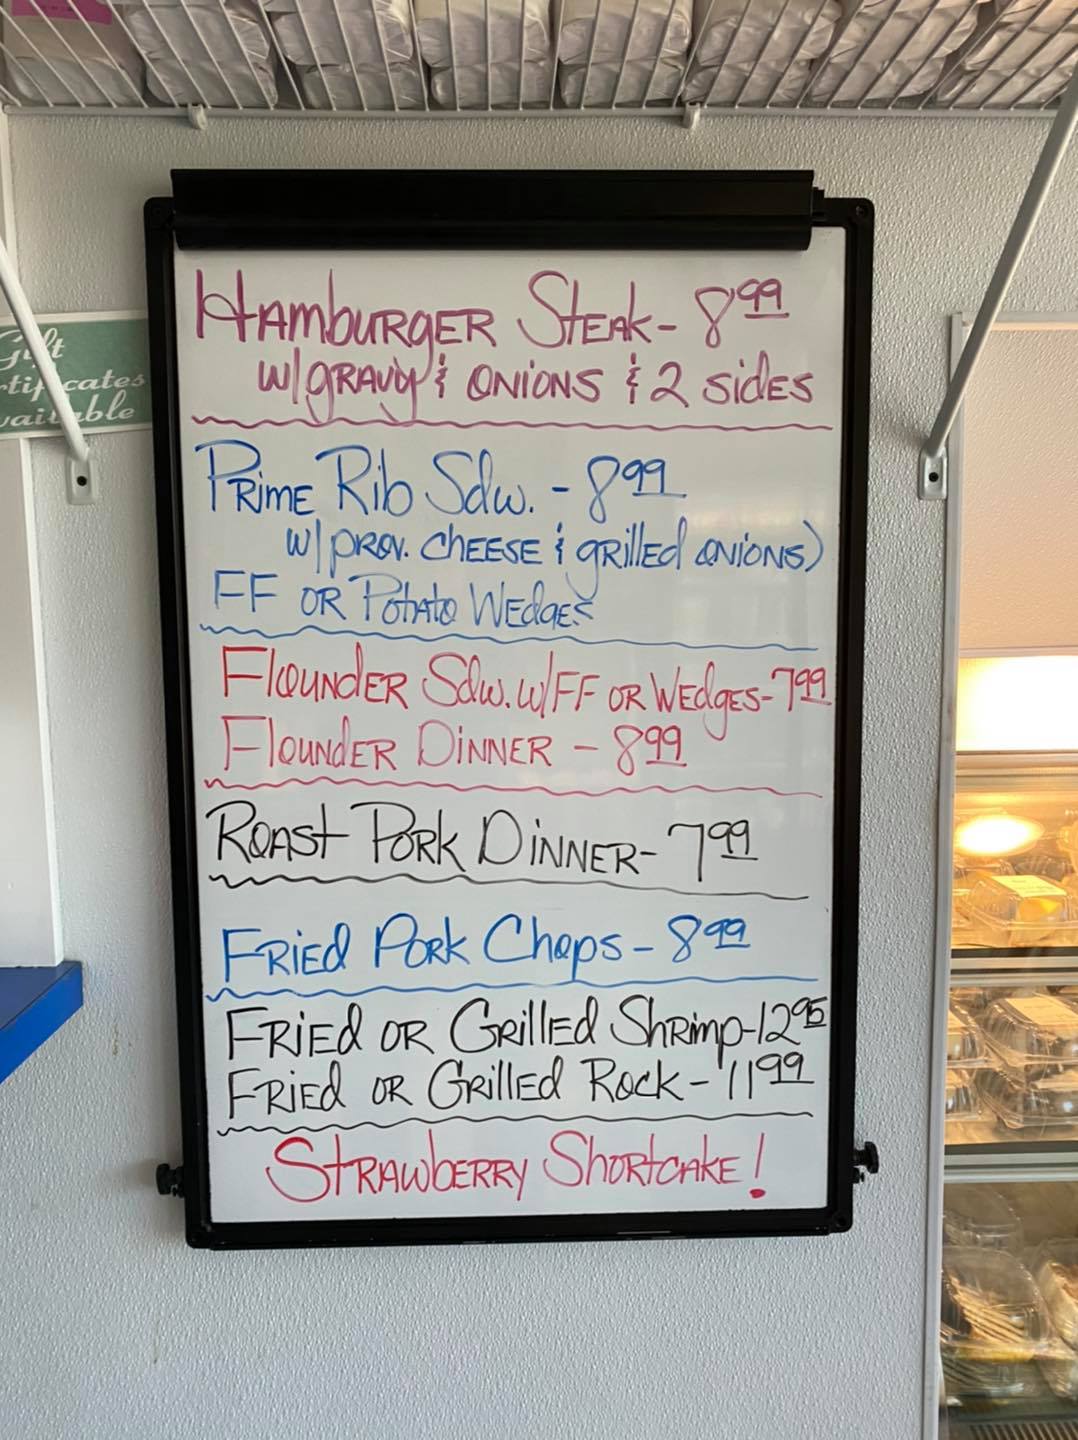 Gift
rtificates
vailable
Hamburger Steak - 8.99
w/gravy & onions & 2 sides
Prime Rib Sdw. - 8.99
w/prov. cheese & grilled onions)
FF or Potato Wedges
Flounder Sdw. w/FF or Wedges - 7.99
Flounder Dinner - 8.99
Roast Pork Dinner - 7.99
Fried Pork Chops - 8.99
Fried or Grilled Shrimp - 12.95
Fried or Grilled Rock - 11.99
Strawberry Shortcake!